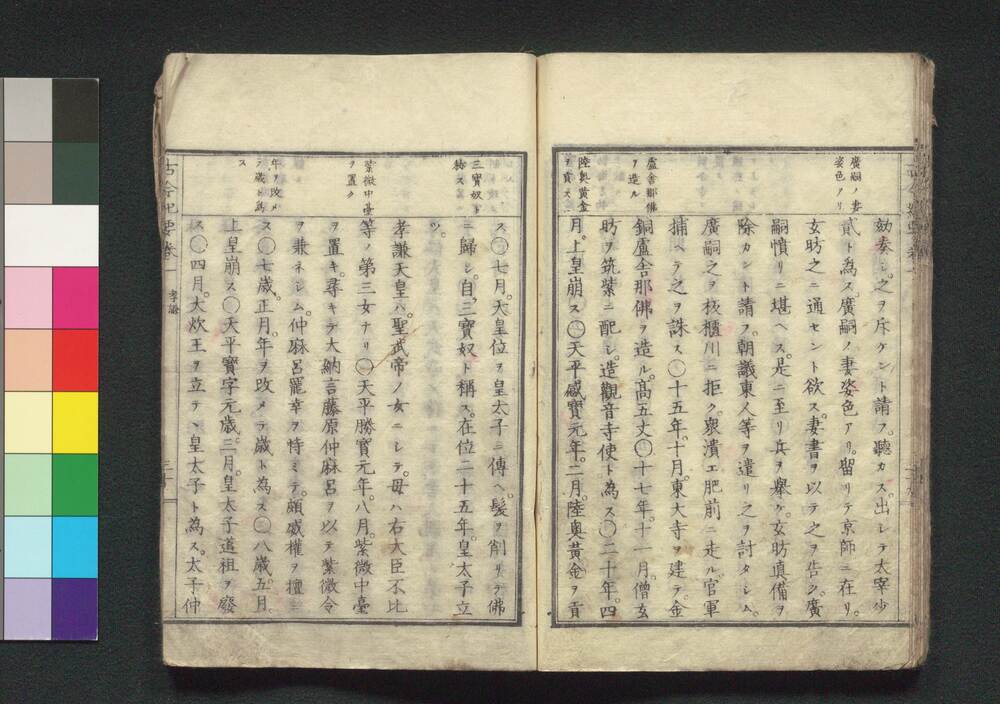 廣嗣ノ妻
姿色アリ
盧舎那佛
ヲ造ル
陸奥黄金
ヲ貢ス
効奏シ。之ヲ斥ケント請フ。聽カス。出シテ太宰少
貳ト為ス。廣嗣ノ妻姿色アリ。留リテ京師ニ在リ。
玄昉之ニ通セント欲ス。妻書ヲ以テ之ヲ告ク。廣
嗣憤リニ堪ヘス。是ニ至リ兵ヲ擧ケ。玄昉真備ヲ
除カント請フ。朝議東人等ヲ遣リ之ヲ討タシム。
廣嗣之ヲ板櫃川ニ拒ク。衆潰エ肥前ニ走ル。官軍
捕ヘテ之ヲ誅ス〇十五年。十月。東大寺ヲ建テ。金
銅盧舎那佛ヲ造ル。髙五丈〇十七年。十一月。僧玄
昉ヲ筑紫ニ配シ。造觀音寺使ト為ス〇二十年。四
月。上皇崩ス〇天平感寶元年。二月。陸奥黄金ヲ貢
三寶奴ト
稱ス
紫微中臺
ヲ置ク
年ヲ改メ
テ歳ト為
ス
ス〇七月。天皇位ヲ皇太子ニ傳ヘ。髪ヲ削リテ佛
ニ歸シ。自三寶奴ト稱ス。在位二十五年。皇太子立
ツ。
孝謙天皇ハ。聖武帝ノ女ニシテ。母ハ右大臣不比
等ノ第三女ナリ〇天平勝寶元年。八月。紫微中臺
ヲ置キ。尋キテ大納言藤原仲麻呂ヲ以テ紫微令
ヲ兼ネシム。仲麻呂寵幸ヲ恃ミテ。頗威權ヲ擅ニ
ス〇七歳。正月。年ヲ改メテ歳ト為ス〇八歳。五月。
上皇崩ス〇天平寶字元歳。三月。皇太子道祖ヲ廢
ス〇四月。大炊王ヲ立テヽ皇太子ト為ス。太子仲
古今紀要巻一 孝謙